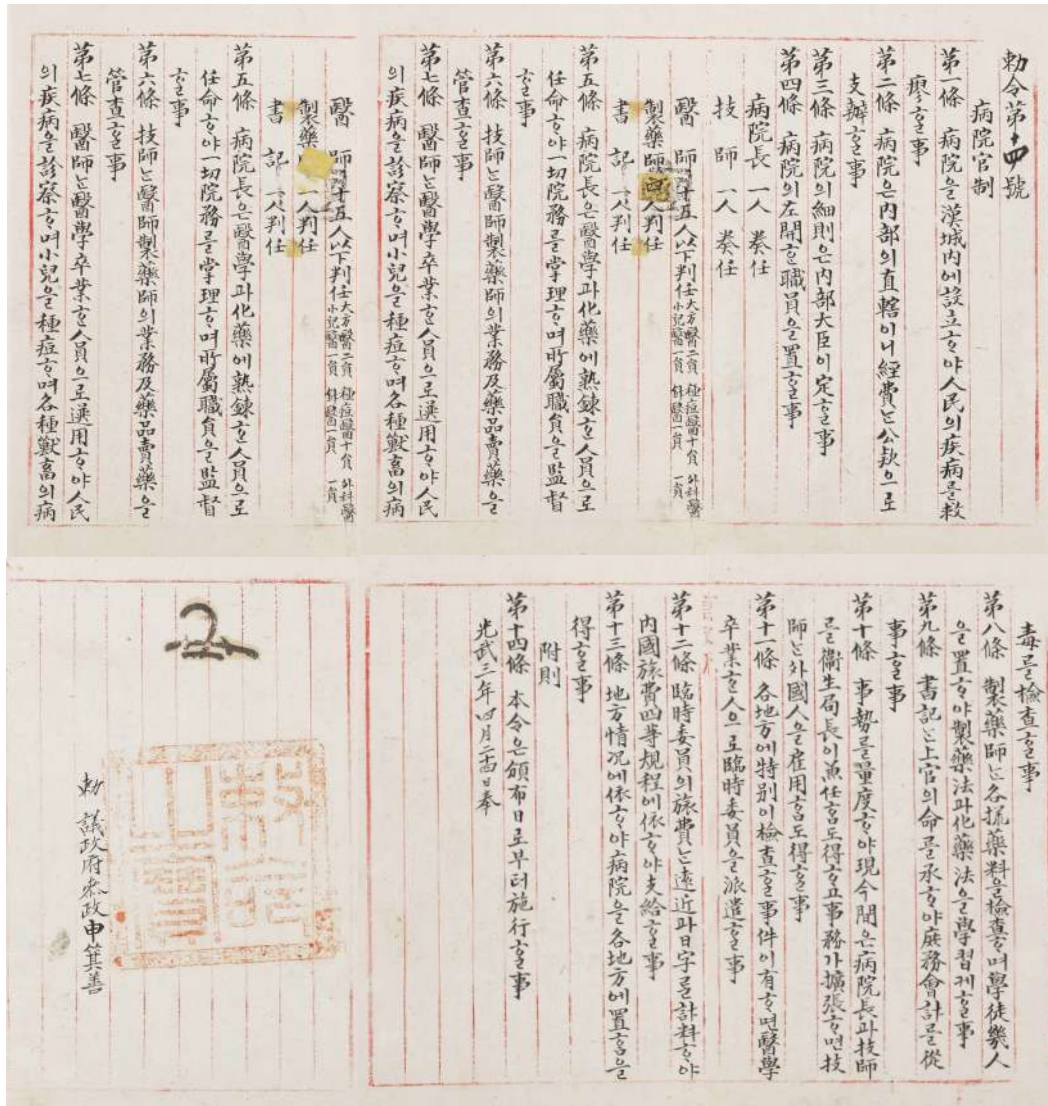 勅令第十四號
病院官制
第一條 病院을漢城內에設立ᄒᆞ야人民의疾病을救
療ᄒᆞᆯ事
第二條 病院은內部의直轄이니經費ᄂᆞᆫ公欵으로
支辦ᄒᆞᆯ事
第三條 病院의細則은內部大臣이定ᄒᆞᆯ事
第四條 病院의左開ᄒᆞᆫ職員을置ᄒᆞᆯ事
病院長 一人 奏任
技師 一人 奏任
醫師 十五人以下判任 大方醫二員 種痘醫十員 外科醫一員 小兒醫一員 針醫一員
製藥師 一人判任
書記 一人判任
第五條 病院長은醫學과化藥에熟鍊ᄒᆞᆫ人員으로
任命ᄒᆞ야一切院務를掌理ᄒᆞ며所屬職員을監督
ᄒᆞᆯ事
第六條 技師ᄂᆞᆫ醫師製藥師의業務及藥品賣藥을
管查ᄒᆞᆯ事
第七條 醫師ᄂᆞᆫ醫學卒業ᄒᆞᆫ人員으로選用ᄒᆞ야人民
의疾病을診察ᄒᆞ며小兒을種痘ᄒᆞ며各種獸畜의病
醫師 十五人以下判任 大方醫二員 種痘醫十員 外科醫一員 小兒醫一員 針醫一員
製藥 一人判任
書記 一人判任
第五條 病院長은醫學과化藥에熟鍊ᄒᆞᆫ人員으로
任命ᄒᆞ야一切院務를掌理ᄒᆞ며所屬職員을監督
ᄒᆞᆯ事
第六條 技師ᄂᆞᆫ醫師製藥師의業務及藥品賣藥을
管查ᄒᆞᆯ事
第七條 醫師ᄂᆞᆫ醫學卒業ᄒᆞᆫ人員으로選用ᄒᆞ야人民
의疾病을診察ᄒᆞ며小兒을種痘ᄒᆞ며各種獸畜의病
毒를檢查ᄒᆞᆯ事
第八條 製藥師ᄂᆞᆫ各項藥料을檢查ᄒᆞ며學徒幾人
을置ᄒᆞ야製藥法과化藥法을學習게ᄒᆞᆯ事
第九條 書記ᄂᆞᆫ上官의命를承ᄒᆞ야庶務會計를從
事ᄒᆞᆯ事
第十條 事勢를量度ᄒᆞ야現今間은病院長과技師
를衛生局長이兼任ᄒᆞᆷ도得ᄒᆞ고事務가擴張ᄒᆞ면技
師ᄂᆞᆫ外國人을雇用ᄒᆞᆷ도得ᄒᆞᆯ事
第十一條 各地方에特別이檢查ᄒᆞᆯ事件이有ᄒᆞ면醫學
卒業ᄒᆞᆫ人으로臨時委員을派遣ᄒᆞᆯ事
第十二條 臨時委員의旅費ᄂᆞᆫ遠近과日字를計料ᄒᆞ야
內國旅費四等規程에依ᄒᆞ야支給ᄒᆞᆯ事
第十三條 地方情況에依ᄒᆞ야病院을各地方에置ᄒᆞᆷ을
得ᄒᆞᆯ事
附則
第十四條 本令은頒布日로부터施行ᄒᆞᆯ事
光武三年四月二十四日奉
勅 議政府參政申箕善